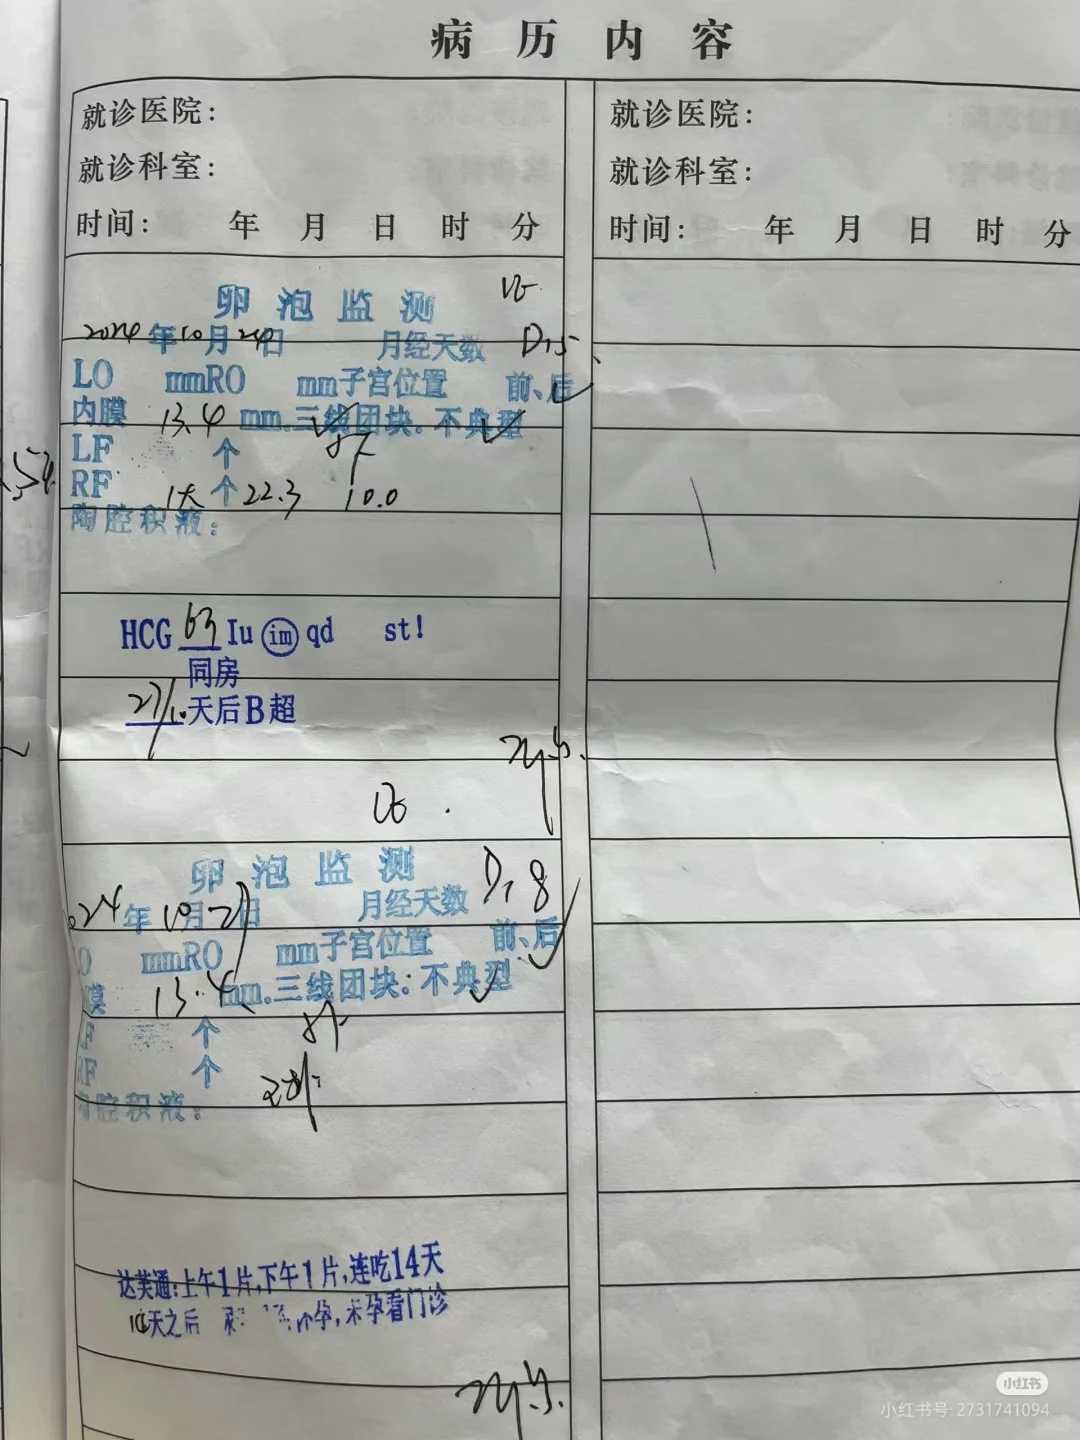 病历内容
就诊医院：
就诊科室：
时间： 年 月 日 时 分
卵泡监测
2024年10月24日 月经天数 D15
LO mmRO mm子宫位置 前、后
内膜 13.4 mm.三线团块.不典型
LF 个
RF 1大 个 22.3 10.0
陶腔积液：
HCG Iu im qd st!
同房
27/10 天后B超
卵泡监测
024年10月27日 月经天数 D18
O mmRO mm子宫位置 前、后
膜 13.4 mm.三线团块：不典型
F 个
RF 个
腔积液：
达芙通：上午1片,下午1片,连吃14天
天之后 孕,未孕看门诊
就诊医院：
就诊科室：
时间： 年 月 日 时 分
小红书
小红书号:2731741094